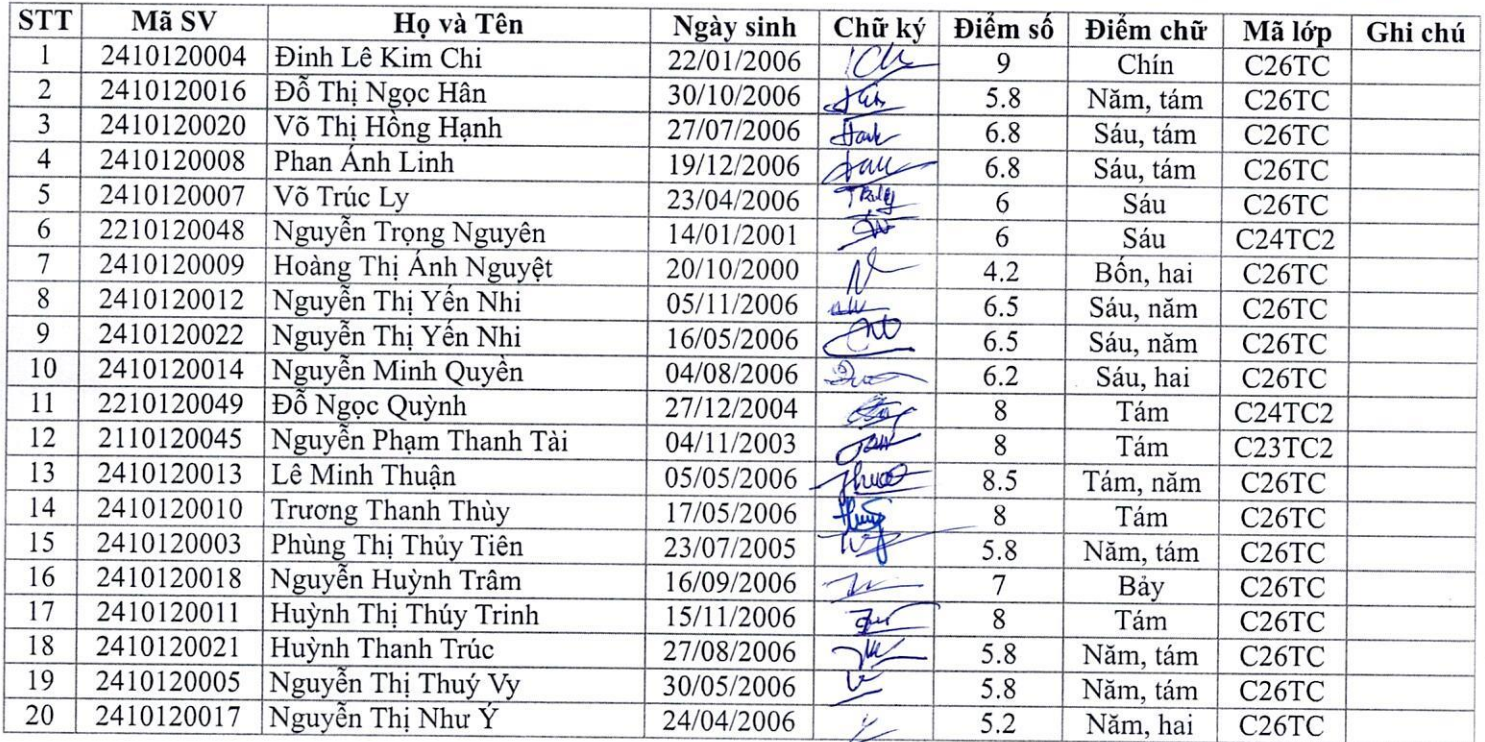 STT Mã SV Họ và Tên Ngày sinh Chữ ký Điểm số Điểm chữ Mã lớp Ghi chú
1 2410120004 Đinh Lê Kim Chi 22/01/2006 9 Chín C26TC
2 2410120016 Đỗ Thị Ngọc Hân 30/10/2006 5.8 Năm, tám C26TC
3 2410120020 Võ Thị Hồng Hạnh 27/07/2006 6.8 Sáu, tám C26TC
4 2410120008 Phan Ánh Linh 19/12/2006 6.8 Sáu, tám C26TC
5 2410120007 Võ Trúc Ly 23/04/2006 6 Sáu C26TC
6 2210120048 Nguyễn Trọng Nguyên 14/01/2001 6 Sáu C24TC2
7 2410120009 Hoàng Thị Ánh Nguyệt 20/10/2000 4.2 Bốn, hai C26TC
8 2410120012 Nguyễn Thị Yến Nhi 05/11/2006 6.5 Sáu, năm C26TC
9 2410120022 Nguyễn Thị Yến Nhi 16/05/2006 6.5 Sáu, năm C26TC
10 2410120014 Nguyễn Minh Quyền 04/08/2006 6.2 Sáu, hai C26TC
11 2210120049 Đỗ Ngọc Quỳnh 27/12/2004 8 Tám C24TC2
12 2110120045 Nguyễn Phạm Thanh Tài 04/11/2003 8 Tám C23TC2
13 2410120013 Lê Minh Thuận 05/05/2006 8.5 Tám, năm C26TC
14 2410120010 Trương Thanh Thùy 17/05/2006 8 Tám C26TC
15 2410120003 Phùng Thị Thủy Tiên 23/07/2005 5.8 Năm, tám C26TC
16 2410120018 Nguyễn Huỳnh Trâm 16/09/2006 7 Bảy C26TC
17 2410120011 Huỳnh Thị Thúy Trinh 15/11/2006 8 Tám C26TC
18 2410120021 Huỳnh Thanh Trúc 27/08/2006 5.8 Năm, tám C26TC
19 2410120005 Nguyễn Thị Thuý Vy 30/05/2006 5.8 Năm, tám C26TC
20 2410120017 Nguyễn Thị Như Ý 24/04/2006 5.2 Năm, hai C26TC